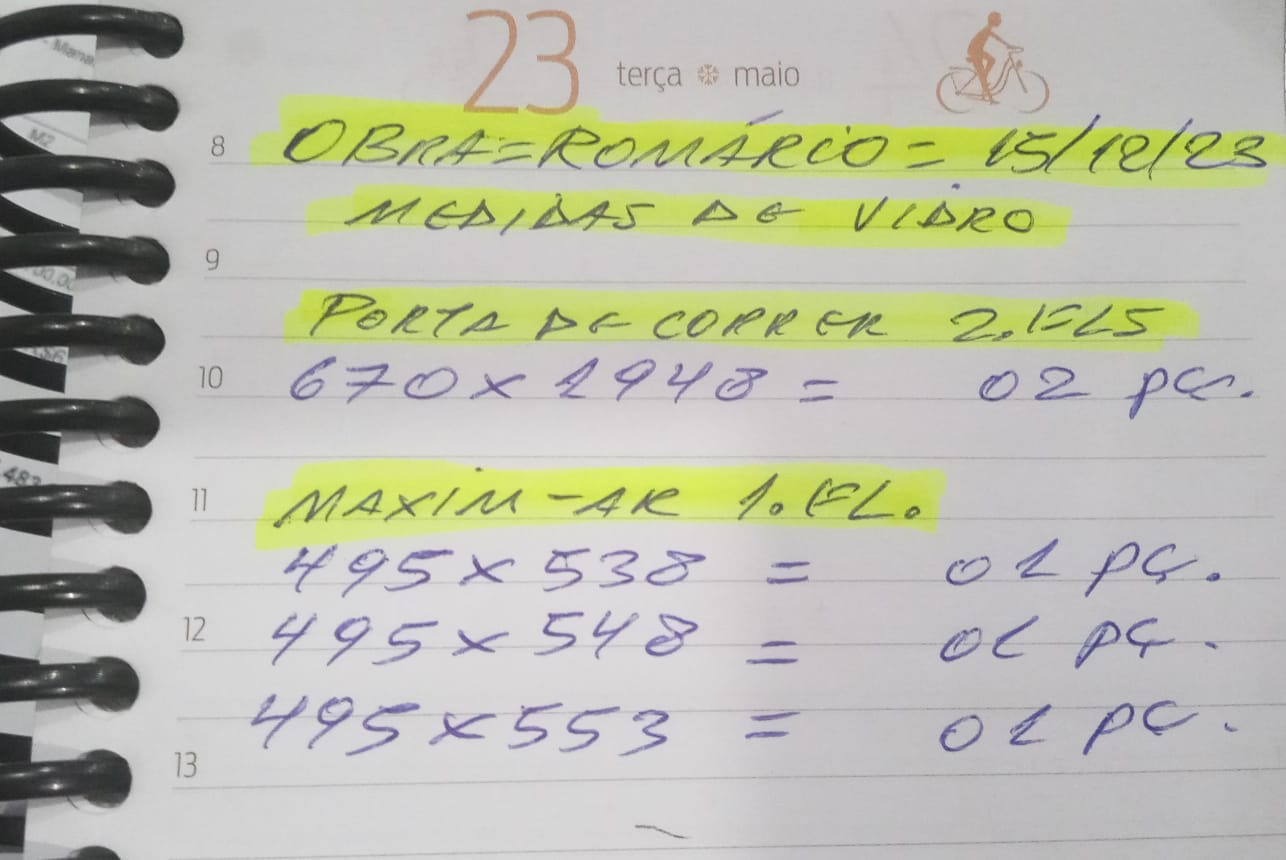 23 terça maio
8 OBRA=ROMÁRIO= 15/12/23
MEDIDAS DE VIDRO
9
PORTA DE CORRER 2.FLS
10 670x1948= 02 pç.
11 MAXIM-AR 1.FL.
495x538 = 01 pç.
12 495x548 = 01 pç.
495x553 = 01 pç.
13